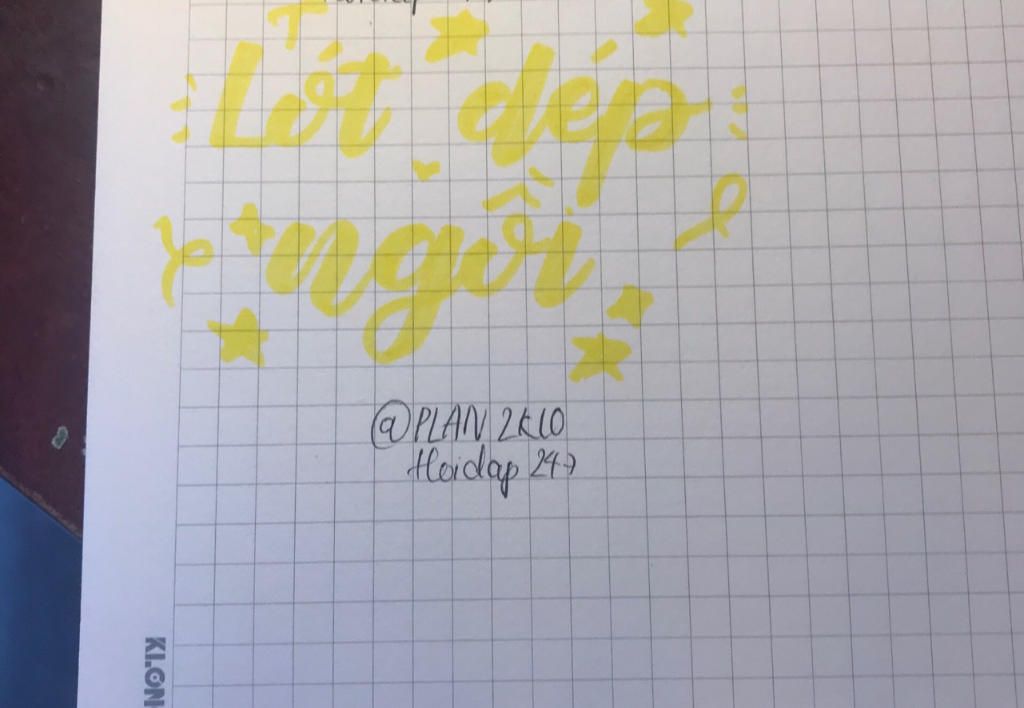 Lót dép
ngồi
@PLAN 2K10
Hoidap 247
KLON